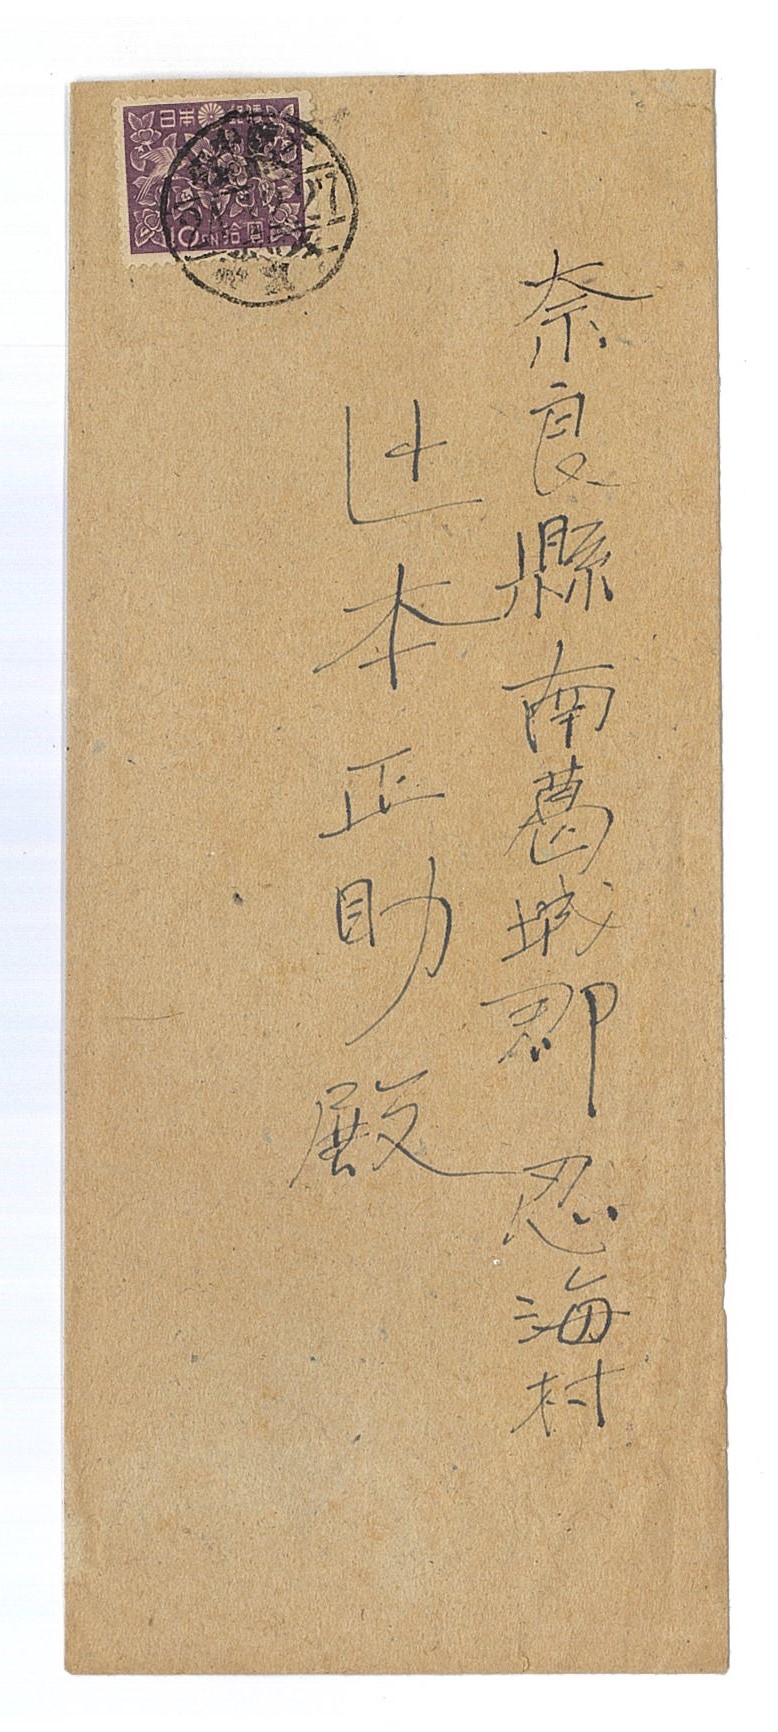 奈良縣南葛城郡忍海村
辻本正助殿
日本郵便
10YEN 拾圓
27